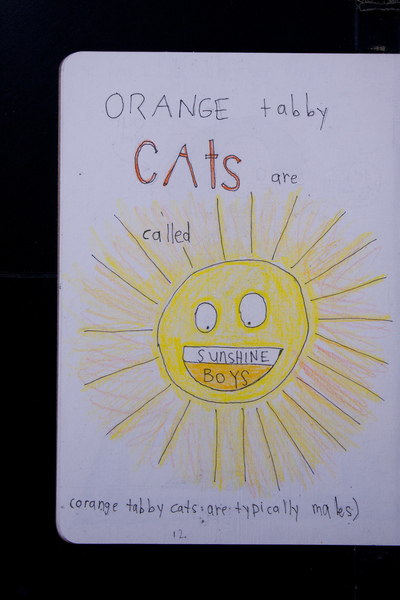 ORANGE tabby
CAts are
called
SUNSHINE
BOYS
(orange tabby cats are typically males)
12